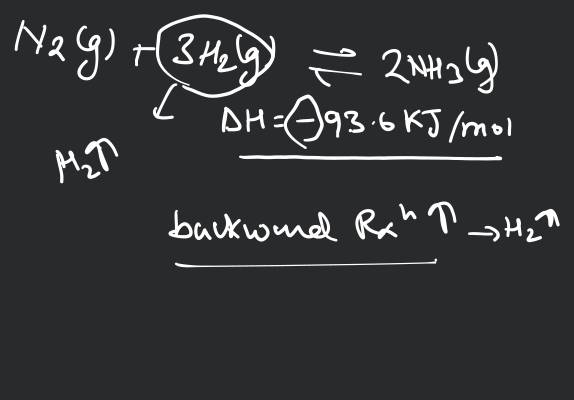 N2(g) + 3H2(g) ⇌ 2NH3(g)
ΔH = -93.6 KJ/mol
H2↑
backward Rxn ↑ → H2↑